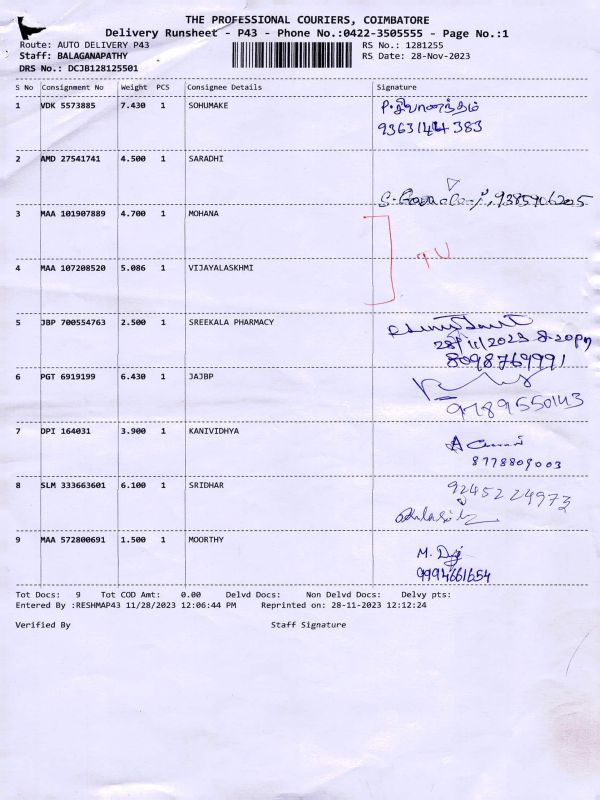 THE PROFESSIONAL COURIERS, COIMBATORE
Delivery Runsheet - P43 - Phone No.:0422-3505555 - Page No.:1
Route: AUTO DELIVERY P43 RS No.: 1281255
Staff: BALAGANAPATHY RS Date: 28-Nov-2023
DRS No.: DCJB128125501
S No Consignment No Weight PCS Consignee Details Signature
1 VDK 5573885 7.430 1 SOHUMAKE
9363144383
2 AMD 27541741 4.500 1 SARADHI
3 MAA 101907889 4.700 1 MOHANA
T.U
4 MAA 107208520 5.086 1 VIJAYALASKHMI
5 JBP 700554763 2.500 1 SREEKALA PHARMACY
28/11/2023 8.20pm
8098769991
6 PGT 6919199 6.430 1 JAJBP
9789550143
7 DPI 164031 3.900 1 KANIVIDHYA
8778809003
8 SLM 333663601 6.100 1 SRIDHAR 9245224973
9 MAA 572800691 1.500 1 MOORTHY
9994661654
Tot Docs: 9 Tot COD Amt: 0.00 Delvd Docs: Non Delvd Docs: Delvy pts:
Entered By :RESHMAP43 11/28/2023 12:06:44 PM Reprinted on: 28-11-2023 12:12:24
Verified By Staff Signature